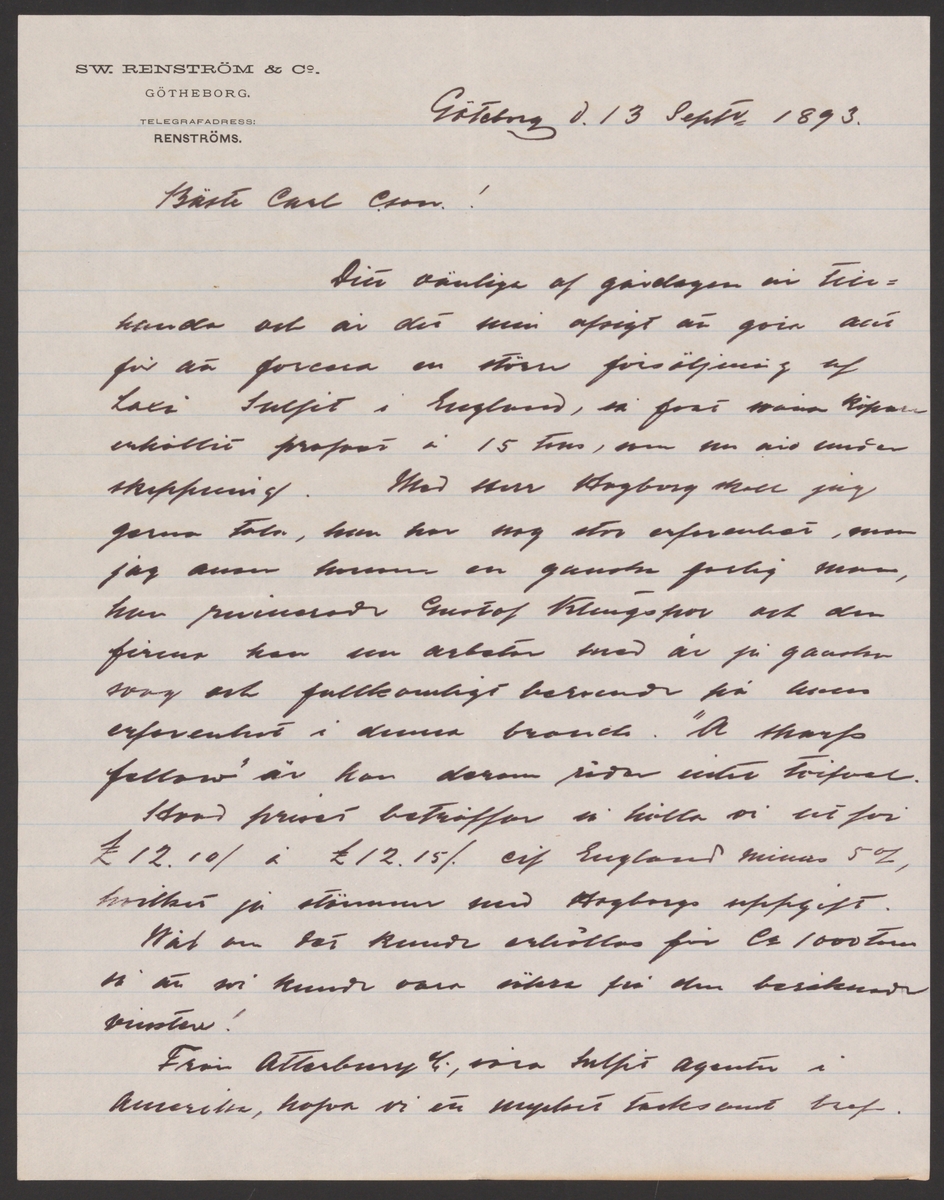 SW. RENSTRÖM & Co.
GÖTHEBORG.
TELEGRAFADRESS:
RENSTRÖMS.
Göteborg d. 13 Septbr 1893.
Bäste Carl Cson!
Ditt vänliga af gårdagen är till=
handa och är det min afsigt att göra allt
för att forcera en större försäljning af
Laxå Sulfit i England, så fort wåra köpare
erhållit profvet å 15 tons, som nu äro under
skeppning. Med Herr Hagborg skall jag
gerna tala, han har nog stor erfarenhet, men
jag anser honom en ganska farlig man,
han ruinerade Gustaf Klingspor och den
firma han nu arbetar med är ju ganska
svag och fullkomligt beroende på hans
erfarenhet i denna branch. "A sharp
fellow" är han derom råder intet tvifvel.
Hvad priset beträffar så hålla vi ut för
£ 12.10/ à £ 12.15/. cif England minus 5%,
hvilket ju stämmer med Hagborgs uppgift.
Wäl om det kunde erhållas för Ca 1000 tons
så att wi kunde vara säkra på den beräknade
vinsten!
Från Atterbury &C., våra Sulfit agenter i
Amerika, hafva vi ett mycket tacksamt bref.